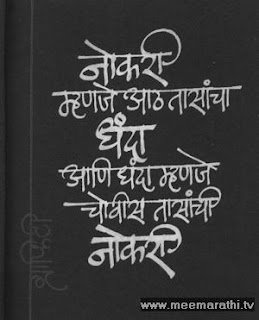 नोकरी
म्हणजे आठ तासांचा
धंदा
आणि धंदा म्हणजे
चोवीस तासांची
नोकरी
ग्राफिटी
www.meemarathi.tv